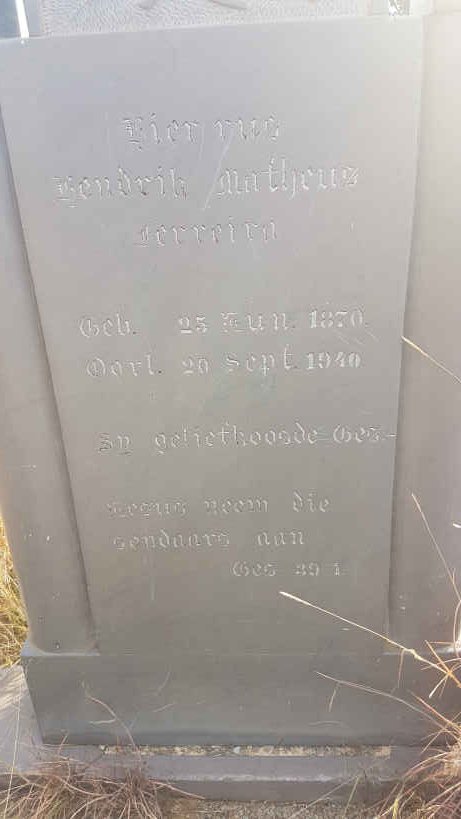 Hier rus
Hendrik Matheus
Ferreira
Geb. 25 Jun. 1870.
Oorl. 20 Sept. 1940
Sy geliefkoosde Ges.-
Jesus neem die
sondaars aan
Ges 39 1